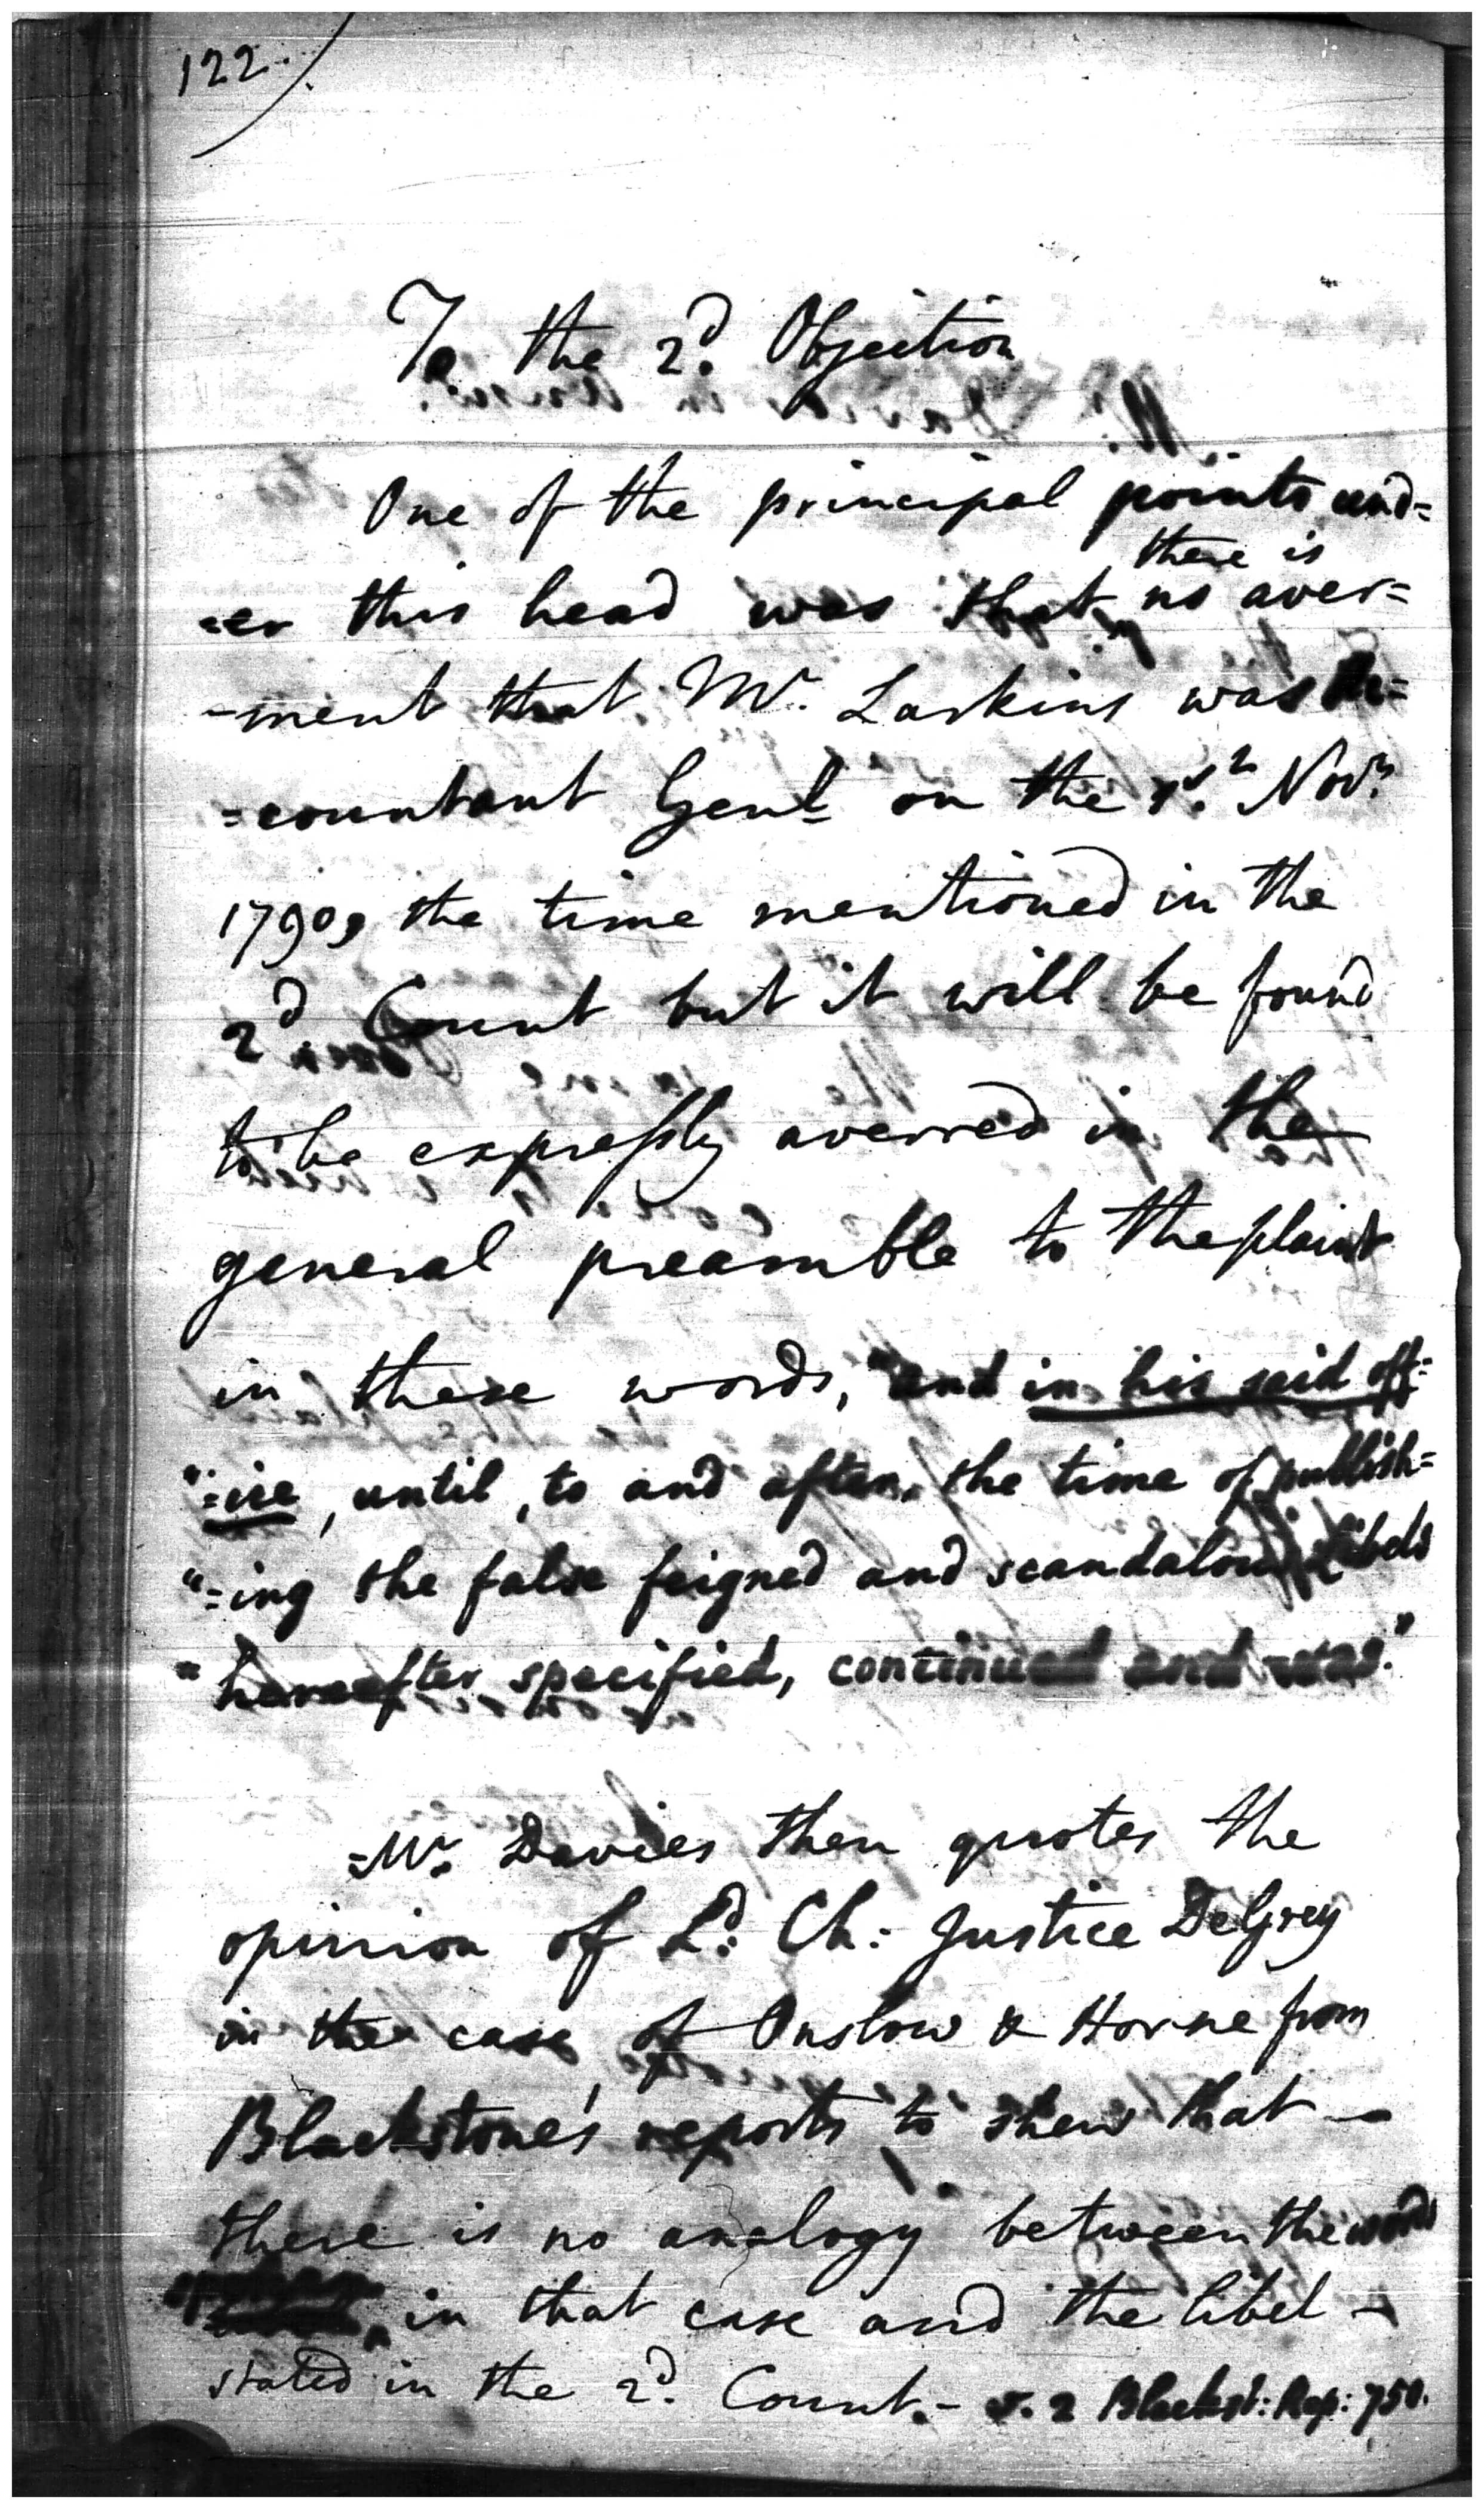 122.
To the 2d. Objection
One of the principal points und=
=er this head was that there is no aver=
-ment that Mr. Larkins was Ac=
=countant Genl on the Novr.
1790, the time mentioned in the
2d. Count but it will be found
to be expressly averred in the
general preamble to the plaint
in these words, "and in his said off=
"=ice, until, to and after, the time of publish=
"=ing the false feigned and scandalous libels
"hereafter specified, continued and was."
Mr. Davies then quotes the
opinion of Ld. Ch: Justice DeGrey
in the case of Onslow & Horne from
Blackstone's reports to shew that -
there is no analogy between the words
in that case and the libel -
stated in the 2d. Count. - v. 2 Blackst: Rep: 750.